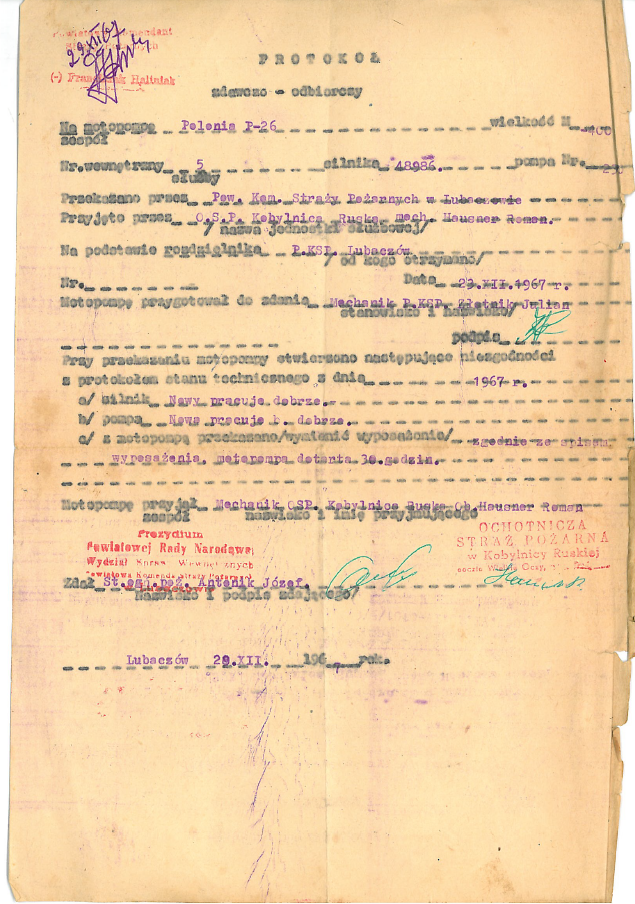 Powiatowy Komendant
Straży Pożarnych
29 XII 67
(-) Franciszek Hałtniak
PROTOKOŁ
zdawczo - odbiorczy
Na motopompę Polonia P-26 wielkość M 400
zespół
Nr.wewnętrzny 5 silnika 48986. pompa Nr.
służby
Przekazano przez Pow. Kom. Straży Pożarnych w Lubaczowie
Przyjęto przez O.S.P. Kobylnica Ruska mech. Hausner Roman.
/ nazwa jednostki służbowej/
Na podstawie rozdzielnika P.KSP. Lubaczów
/ od kogo otrzymano/
Nr. Data 29.XII.1967 r.
Motopompę przygotował do zdania Mechanik P.KSP. Złotnik Julian
stanowisko i nazwisko/
podpis
Przy przekazaniu motopompy stwierzono następujące niezgodności
z protokołem stanu technicznego z dnia 1967 r.
a/ silnik Nowy pracuje dobrze.
b/ pompa Nowa pracuje b. dobrze.
c/ z motopompą przekazano/wymienić wyposażenie/ zgodnie ze spisem
wyposażenia. motorompa dotarta 30 godzin.
Motopompę przyjął Mechanik OSP. Kobylnica Ruska Ob.Hausner Roman
zespół nazwisko i imię przyjmującego
Prezydium
Powiatowej Rady Narodowej
Wydział Spraw Wewnętrznych
Powiatowa Komenda Straży Pożarnych
OCHOTNICZA
STRAŻ POŻARNA
w Kobylnicy Ruskiej
poczta Wielkie Oczy,
Zdał St.ogn.poż. Antonik Józef.
Nazwisko i podpis zdającego/
Lubaczów 29.XII. 196 rok.